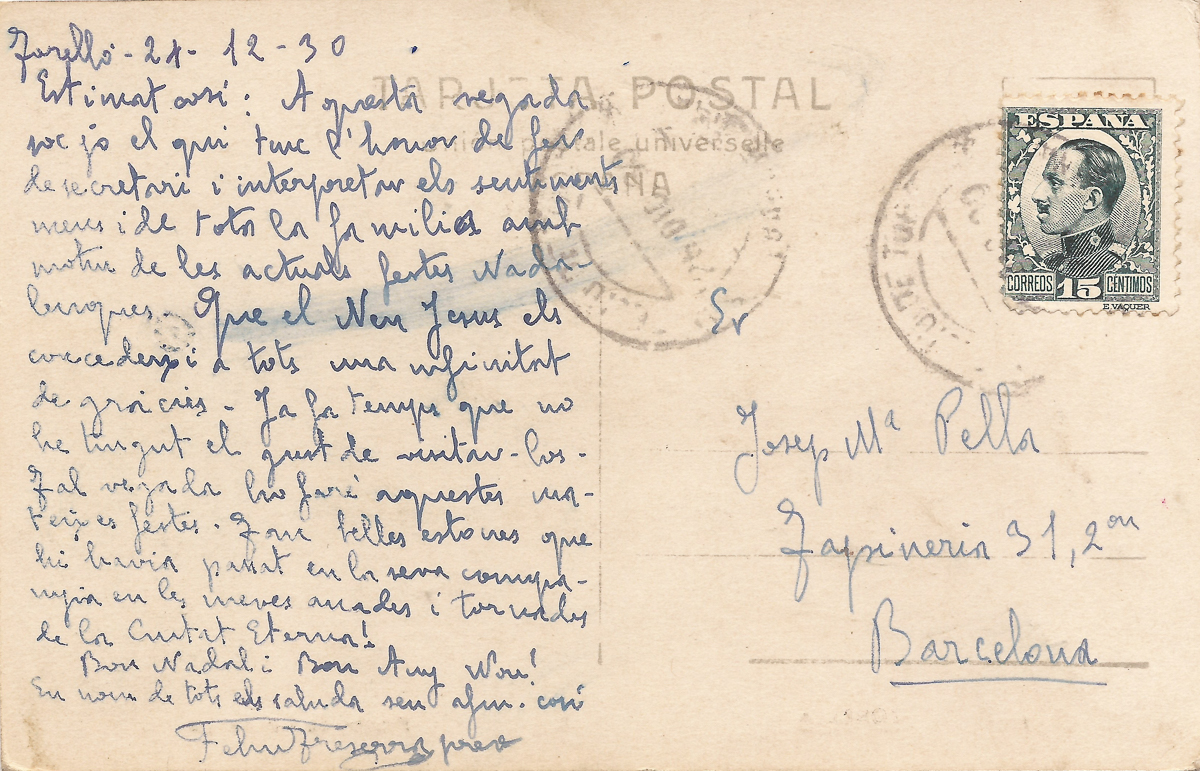 Torelló - 21 - 12 - 30
Estimat cosí: Aquesta vegada
soc jo el qui tinc l'honor de fer
de secretari i interpretar els sentiments
meus i de tota la familia amb
motiu de les actuals festes Nada-
lenques. Que el Nen Jesus els
concedeixi a tots una infinitat
de gracies. Ja fa temps que no
he tingut el gust de visitar-los.
Tal vegada ho faré aquestes ma-
teixes festes. Tan belles estones que
hi havia passat en la seva compa-
nyia en les meves anades i tornades
de la Ciutat Eterna!
Bon Nadal i Bon Any Nou!
En nom de tots els saluda seu afm. cosí
Feliu
TARJETA POSTAL
postale universelle
ESPAÑA
CORREOS 15 CENTIMOS
E. VAQUER
Sr
Josep Mª Pella
Tapineria 31, 2on
Barcelona